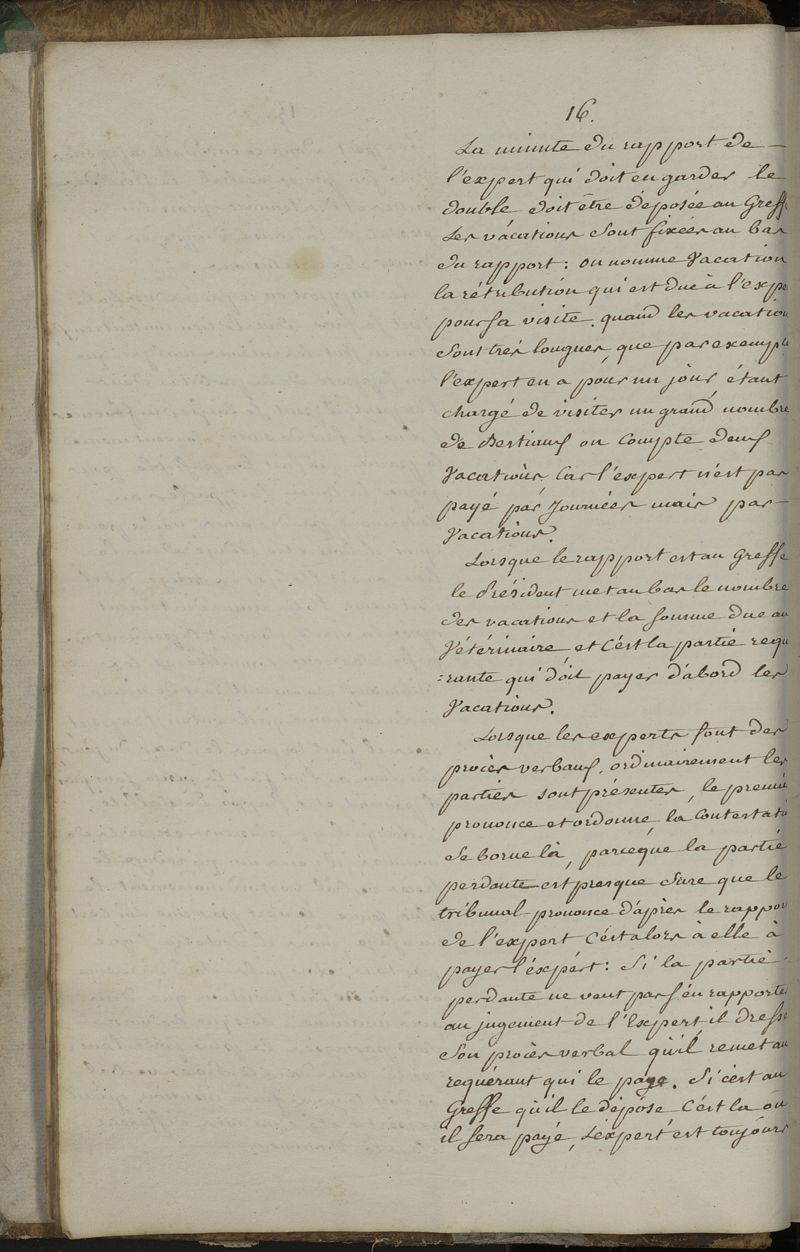 16.
La minute du rapport de —
l'expert qui doit en garder le
double doit être déposée au Greff
Les vacations sont fixées au bas
du rapport : on nomme Vacation
la rétribution qui est due à l'expe
pour sa visite. quand les vacation
sont très longues, que par exemple
l'expert en a pour un jour, étant
chargé de visiter un grand nombre
de Bestiaux on compte deux
Vacations, Car l'expert n'est pas
payé par Journées mais par —
Vacations.
Lorsque le rapport est au Greffe
le Président met au bas le nombre
des vacations et la somme due au
Vétérinaire et C'est la partie requ
=rante qui doit payer d'abord les
Vacations.
Lorsque les experts font des
procès verbaux, ordinairement les
parties sont présentes, le premier
prononce et ordonne, la Contestatio
se borne là, parceque la partie
perdante est presque sure que le
tribunal prononce d'après le rappor
de l'expert C'est alors à elle à
payer l'expert : Si la partie
perdante ne veut pas s'en rapporter
au jugement de l'Expert, il dresse
son procès verbal qu'il remet au
requérant qui le paye. Si c'est au
Greffe qu'il le dépose C'est la où
il sera payé, L'expert est toujours